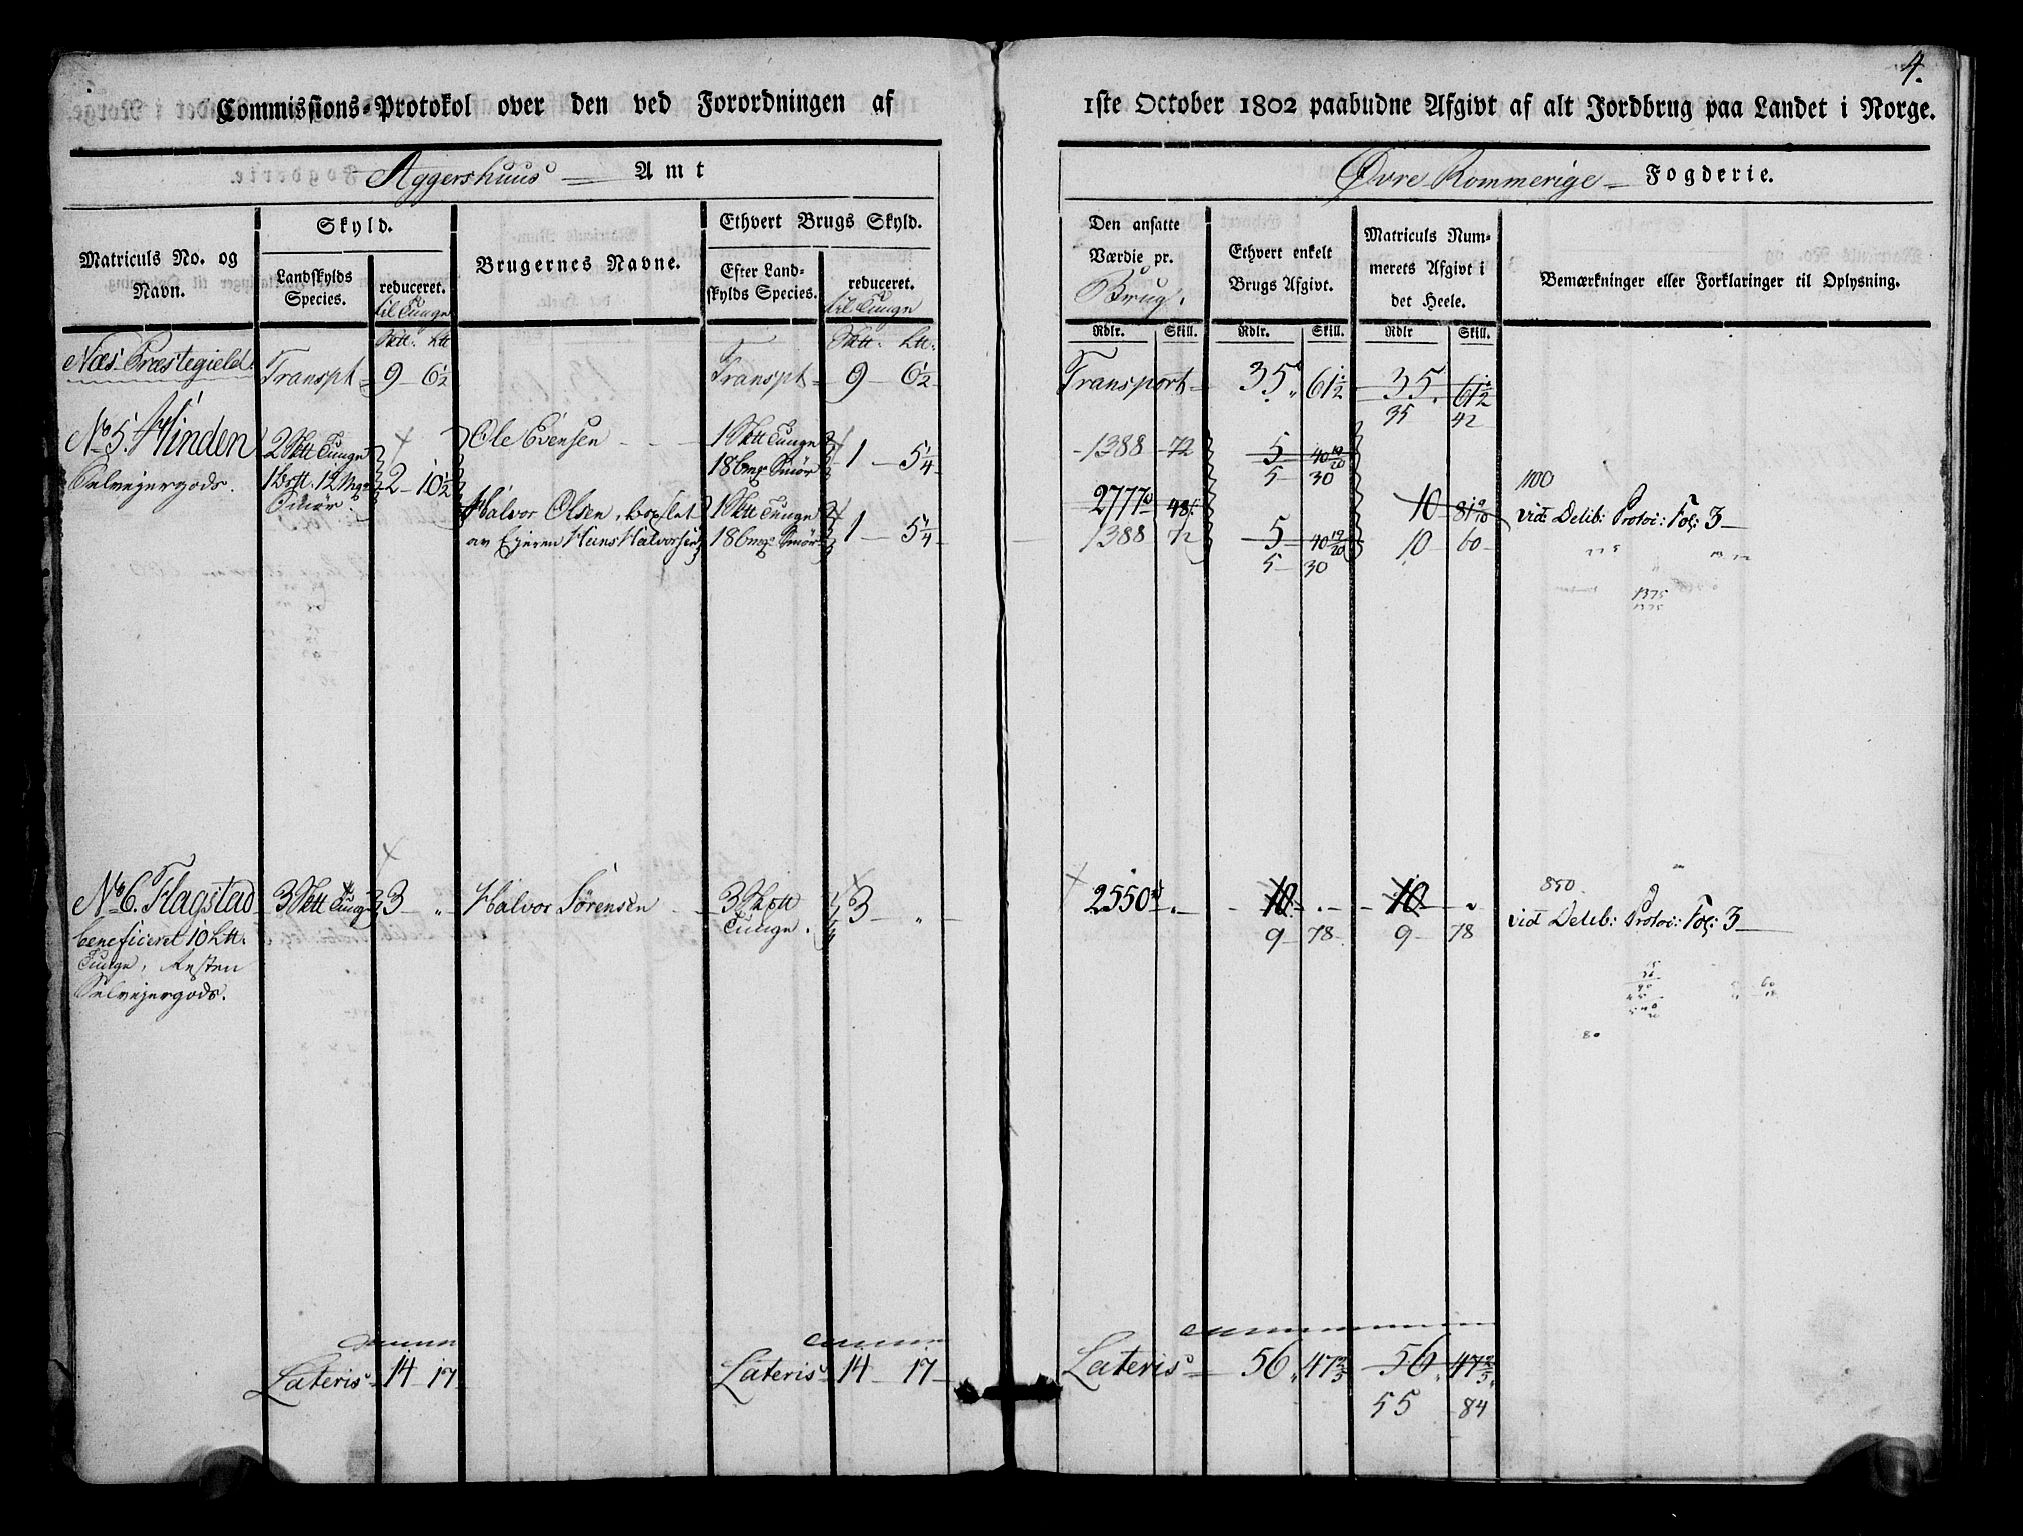 4.
Commissions-Protokol over den ved Forordningen af 1ste October 1802 paabudne Afgivt af alt Jordbrug paa Landet i Norge.
Aggershuus Amt
Øvre Rommerige Fogderie.
Matriculs No. og Navn.
Skyld.
Landskylds Species.
reduceret. til Tunge
Brugernes Navne.
Ethvert Brugs Skyld.
Efter Landskylds Species.
reduceret. til Tunge
Den ansatte Værdie pr. Brug.
Ethvert enkelt Brugs Afgivt.
Matriculs Nummerets Afgivt i det Heele.
Bemærkninger eller Forklaringer til Oplysning.
Sktt. Ltt Sktt. Ltt.
Rdlr. Skill. Rdlr. Skill. Rdlr Skill.
Næs Præstegield.
Transpt 9 - 6½ Transpt 9 - 6½ Transport 35 61½ 35 61½
35 42
No 5. Hinden
Selvejergods.
2 Sktt Tunge
12 Mrk
Smør.
2 - 10½
Ole Evensen
1 Sktt Tunge
18 bmrk Smør
1 - 5¼
1388 - 72
5 40 19/20
5 - 30
Halvor Olsen
av Ejeren Hans Halvorsen
1 Sktt Tunge
18 bmrk Smør
1 - 5¼
2777 48
1388 72
5 40 19/20
5 - 30
10 81 9/10
10 60
1100
vid: Delib: Protoc: Fol: 3
1375
1375
No 6. Flagstad
beneficeret 10 Ltt.
Tunge, Resten
Selvejergods.
3 Sktt Tunge
3 - "
Halvor Sørensen
3 Sktt
Tunge.
3 - "
2550
10
9 - 78
10
9 78
850
vid: Delib: Protoc: Fol: 3
80
Lateris 14 17 Lateris 14 - 17 Lateris 56 47 2/5 56 47 2/5
55 84